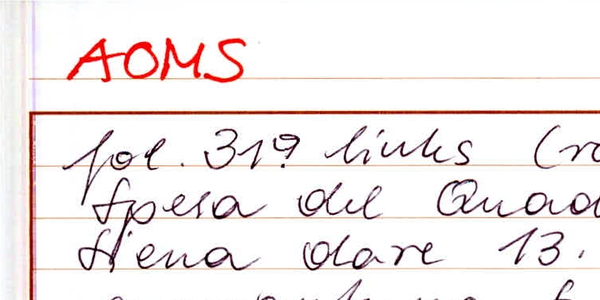 AOMS
fol. 319 links (ro
Spesa del Quad
Siena dare 13.